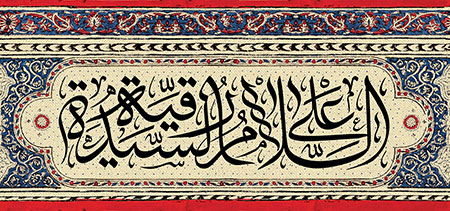 السلام علی السیدة رقیة